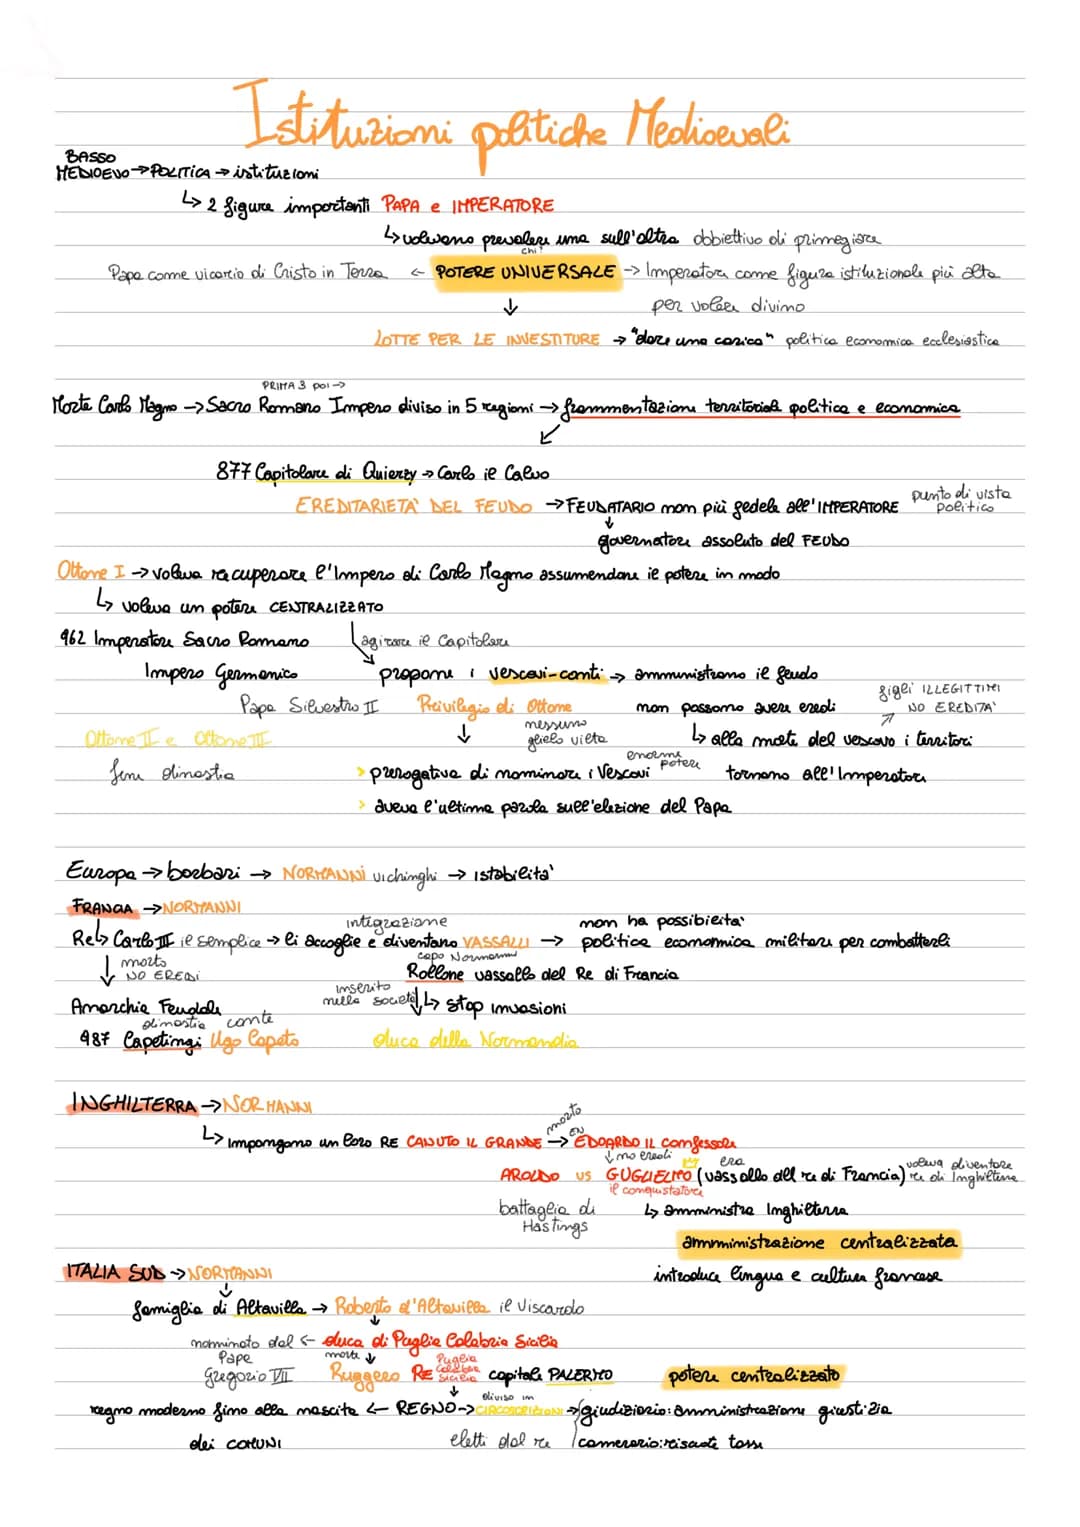 Istituzioni politiche Medioevali
BASSO
MEDIOEVO → POLITICA → istituzioni
↳ 2 figure importanti PAPA e IMPERATORE
↳ volevano prevalere una sull'altra obbiettivo di primegiare
chi?
Papa come vicario di Cristo in Terra ← POTERE UNIVERSALE → Imperatore come figura istituzionale più alta
↓ per volere divino
LOTTE PER LE INVESTITURE → "dare una carica" politica economica ecclesiastica
PRIMA 3 poi →
Morte Carlo Magno → Sacro Romano Impero diviso in 5 regioni → frammentazione territoriale politica e economica
877 Capitolare di Quierzy → Carlo il Calvo
EREDITARIETÀ DEL FEUDO → FEUDATARIO non più fedele all'IMPERATORE punto di vista politico
↓
governatore assoluto del FEUDO
Ottone I → voleva recuperare l'Impero di Carlo Magno assumendone il potere in modo
↳ voleva un potere CENTRALIZZATO
962 Imperatore Sacro Romano agirare il Capitolare
Impero Germanico propone i vescovi-conti → amministrano il feudo
figli ILLEGITTIMI
NO EREDITA'
Papa Silvestro II Privilegio di Ottone non possono avere eredi
nessuno
Ottone II e Ottone III ↓ glielo vieta ↳ alla morte del vescovo i territori
fine dinastia > prerogativa di nominare i Vescovi enorme potere tornano all'Imperatore
> aveva l'ultima parola sull'elezione del Papa
Europa → barbari → NORMANNI vichinghi → istabilita'
FRANCIA → NORMANNI
integrazione non ha possibilita'
Re ↳ Carlo III il semplice → li accoglie e diventano VASSALLI → politica economica militare per combatterli
↓ morto capo Normanni
NO EREDI Rollone vassallo del Re di Francia
inserito
nella società ↳ stop invasioni
Anarchia Feudale
dinastia conte
987 Capetingi Ugo Capeto duca della Normandia
INGHILTERRA → NORMANNI
morto
↳ Impongono un loro RE CANUTO IL GRANDE → EDOARDO IL confessore
↓ no eredi era
AROLDO vs GUGLIELMO (vassallo del re di Francia) voleva diventare re di Inghilterra
il conquistatore
battaglia di ↳ amministra Inghilterra
Hastings
amministrazione centralizzata
ITALIA SUD → NORMANNI introduce lingua e cultura francese
↓
famiglia di Altavilla → Roberto d'Altavilla il Viscardo
↓
nominato dal ← duca di Puglia Calabria Sicilia
Papa morte ↓ Puglia
Gregorio VII Ruggero RE Calabria Sicilia capitale PALERMO potere centralizzato
↓ diviso in
regno moderno fino alla nascita ← REGNO → CIRCOSCRIZIONI → giudiziario: amministrazione giustizia
dei COMUNI eletti dal re camerario: riscuote tasse